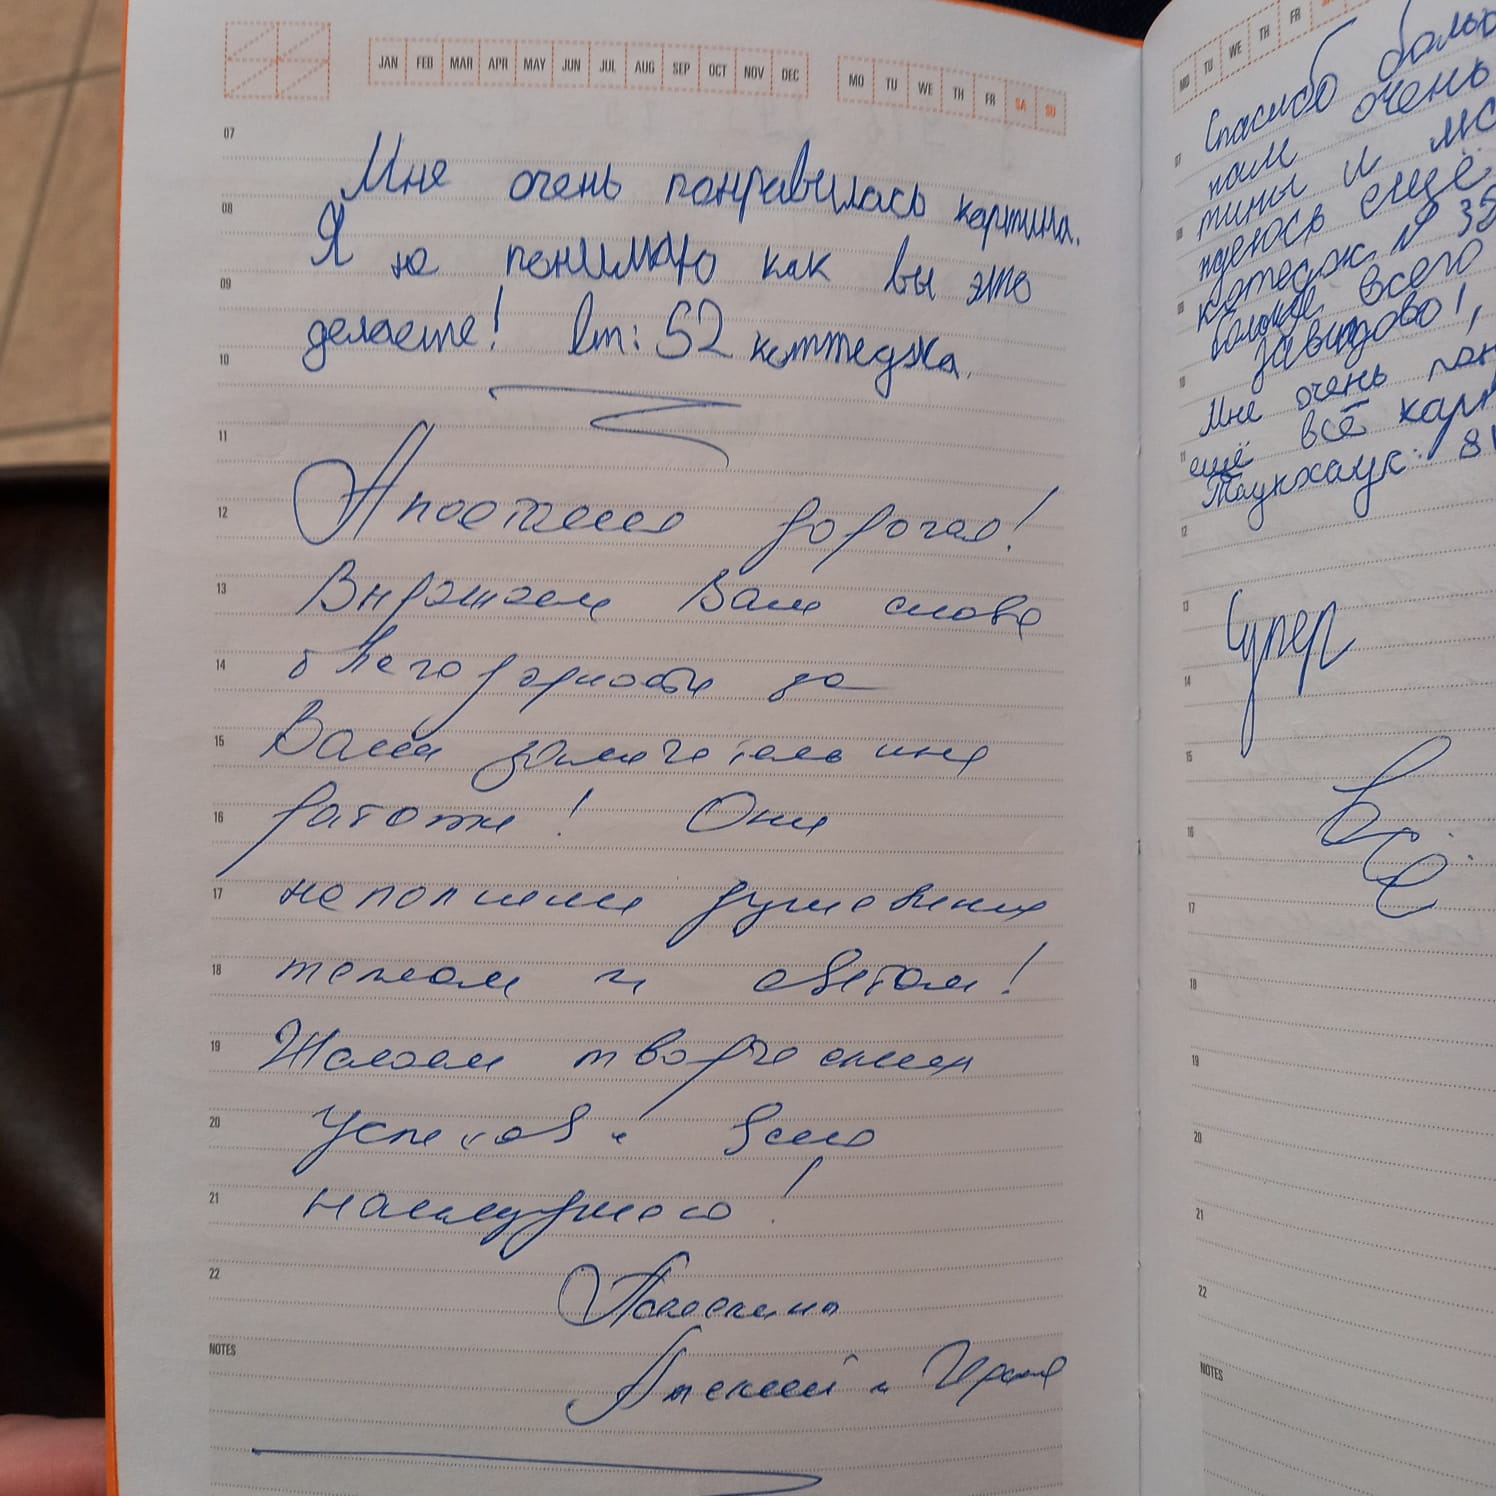 JAN FEB MAR APR MAY JUN JUL AUG SEP OCT NOV DEC
MO TU WE TH FR SA SU
07
Мне очень понравилась картина.
08
Я не понимаю как вы это
09
делаете! От: 52 коттеджа.
10
11
12
Анастасия дорогая!
13
Выражаем Вам слова
14
благодарности за
15
Ваши замечательные
16
работы! Они
17
наполнены душевным
18
теплом и светом!
19
Желаем творческих
20
успехов и всего
21
наилучшего!
22
NOTES
Алексей и Ирина
MO TU WE TH FR
07
Спасибо больш
нам очень
тины и
08
ждеюсь ещё
котедж № 32
09
больше всего
Завидово!,
10
Мне очень пон
11
ещё всё карт
Таунхаус: 81
12
13
Супер
14
15
16
Всё
17
18
19
20
21
22
NOTES